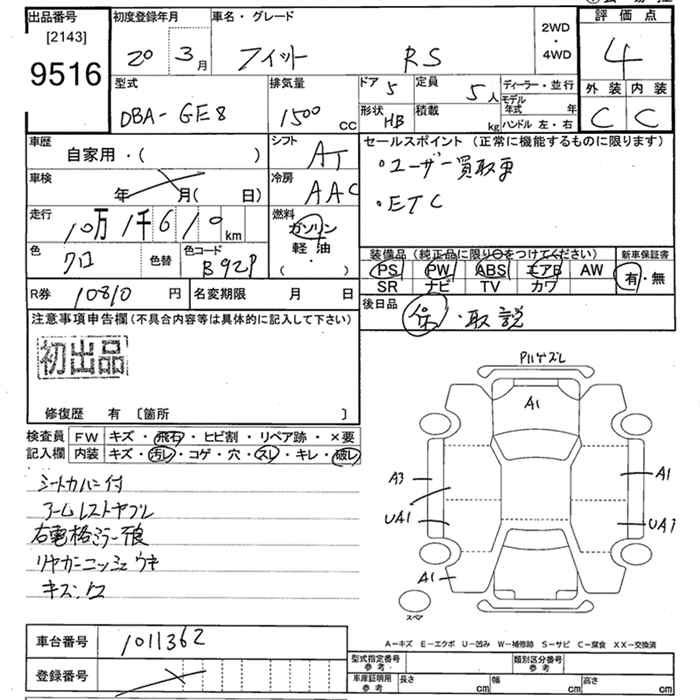 出品番号
[2143]
9516
初度登録年月
20 3月
車名・グレード
フィット RS
2WD
・
4WD
評価点
4
外装 内装
C C
型式
DBA-GE8
排気量
1500 cc
ドア 5
定員 5人
形状 HB
積載 kg
ディーラー・並行
モデル年式 年
ハンドル 左・右
車歴
自家用・( )
シフト
AT
セールスポイント (正常に機能するものに限ります)
・ユーザー買取車
・ETC
車検
年 月( 日)
冷房
AAC
走行
10万1千610 km
燃料
ガソリン
軽油
( )
色
クロ
色替
色コード
B92P
装備品 (純正品に限り○をつけてください)
PS PW ABS エアB AW
SR ナビ TV カワ
新車保証書
有・無
R券 10810 円
名変期限 月 日
後日品
保・取説
注意事項申告欄(不具合内容等は具体的に記入して下さい)
初出品
修復歴 有 [箇所 ]
検査員
記入欄
FW キズ・飛石・ヒビ割・リペア跡・×要
内装 キズ・汚レ・コゲ・穴・スレ・キレ・破レ
シートカバー付
アームレストヤブレ
右電格ミラー不良
リヤガーニッシュウキ
P11サズレ
A1
A3
A1
UA1
UA1
A1
スペア
車台番号
1011362
登録番号
A-キズ E-エクボ U-凹み W-補修跡 S-サビ C-腐食 XX-交換済
型式指定番号
参考
類別区分番号
参考
車庫証明用
参考
長さ cm
幅 cm
高さ cm